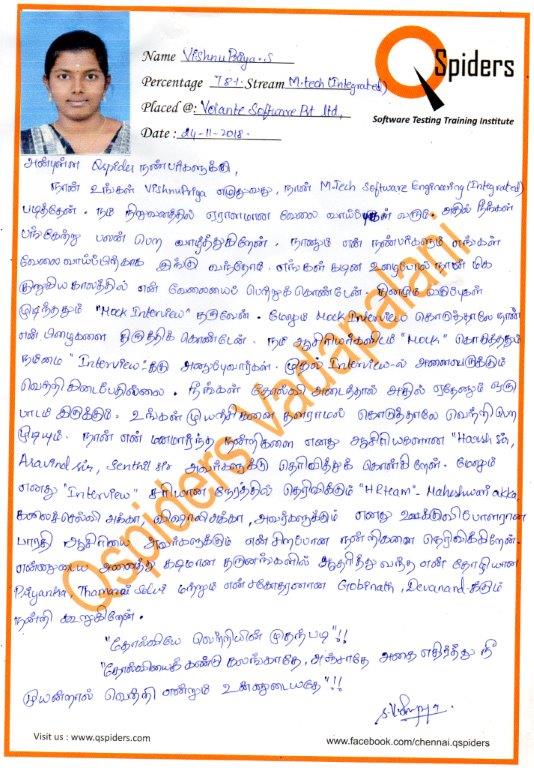 Name Vishnu Priya.S
Percentage 78% Stream M.tech (Integrated)
Placed @: Volante Software Pvt ltd,
Date : 24-11-2018.
QSpiders
Software Testing Training Institute
அன்புள்ள Qspider நண்பர்களுக்கு,
நான் உங்கள் VishnuPriya எழுதுவது, நான் M.Tech Software Engineering (Integrated)
படித்தேன். நம் நிறுவனத்தில் ஏராளமான வேலை வாய்ப்புகள் வரும். அதில் நீங்கள்
பங்கேற்று பலன் பெற வாழ்த்துகிறேன். நானும் என் நண்பர்களும் எங்கள்
வேலை வாய்ப்பிற்காக இங்கு வந்தோம். எங்கள் கடின உழைப்பால் நான் மிக
குறுகிய காலத்தில் என் வேலையைப் பெற்றுக் கொண்டேன். தினமும் வகுப்புகள்
முடிந்ததும் "Mock Interview" தருவேன். மேலும் Mock Interview கொடுத்தாலே நான்
என் பிழைகளை திருத்திக் கொண்டேன். நம் ஆசிரியர்களிடம் "Mock" கொடுத்ததும்
நம்மை "Interview" க்கு அனுப்புவார்கள். முதல் Interview-ல் அனைவருக்கும்
வெற்றி கிடைப்பதில்லை. நீங்கள் தோல்வி அடைந்தால் அதில் ஏதேனும் ஒரு
பாடம் இருக்கும். உங்கள் முயற்சிகளை தளராமல் கொடுத்தாலே வெற்றி பெற
முடியும். நான் என் மனமார்ந்த நன்றிகளை எனது ஆசிரியர்களான "Harish sir,
Aravind sir, Senthil sir அவர்களுக்கு தெரிவித்துக் கொள்கிறேன். மேலும்
எனது "Interview" சரியான நேரத்தில் தெரிவிக்கும் "HR team" - Maheshwari akka,
கலைச்செல்வி அக்கா - விஷாலி அக்கா, அவர்களுக்கும் எனது ஊக்குவிப்பாளரான
பாரதி ஆசிரியை அவர்களுக்கும் என் சிறப்பான நன்றிகளை தெரிவிக்கிறேன்.
என்னுடைய அனைத்து கடினமான தருணங்களில் ஆதரித்து வந்த என் தோழியான
Priyanka, Thamarai Selvi மற்றும் என் சகோதரனான Gobinath, Devanand க்கும்
நன்றி கூறுகிறேன்.
"தோல்வியே வெற்றியின் முதற்படி"!!
"தோல்வியைக் கண்டு கலங்காதே, அஞ்சாதே அதை எதிர்த்து நீ
முயன்றால் வெற்றி என்றும் உன்னுடையதே"!!
Qspiders Vadapalani
Visit us : www.qspiders.com
www.facebook.com/chennai.qspiders